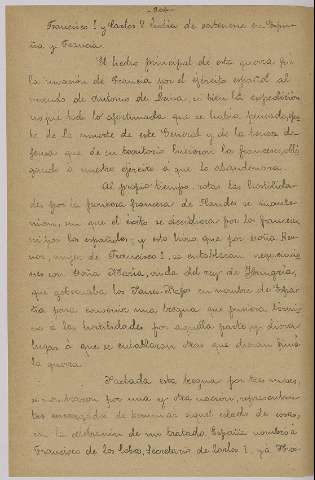 Francisco I y Carlos I
ña y Francia.
El hecho principal de esta guerra fué
la invasión de Francia por el ejército español al
mando de Antonio de Leiva, si bien la expedición
no fué todo lo afortunada que se había pensado,
te de la muerte de este General y de la heroica de-
fensa que de su territorio hicieron los franceses, obli
gando a nuestro ejército a que lo abandonara.
Al propio tiempo, rotas las hostilida-
des por la frontera francesa de Flandes se mante-
nian, sin que el éxito se decidiera por los franceses
ni por los españoles; y esto hizo que por Doña Leo-
nor, mujer de Francisco I, se entablaran negociacio
nes con Doña María, viuda del rey de Hungría,
que gobernaba los Países-Bajos en nombre de Espa-
ña para convenir una tregua que pusiera térmi-
no a las hostilidades por aquella parte y diera
lugar a que se entablaran otras que dieran fin a
la guerra.
Pactada esta tregua por tres meses,
se nombraron por una y otra nacion, representan-
tes encargados de terminar aquel estado de cosas,
con la celebración de un tratado. España nombró a
Francisco de los Cobos, Secretario de Carlos I, y a